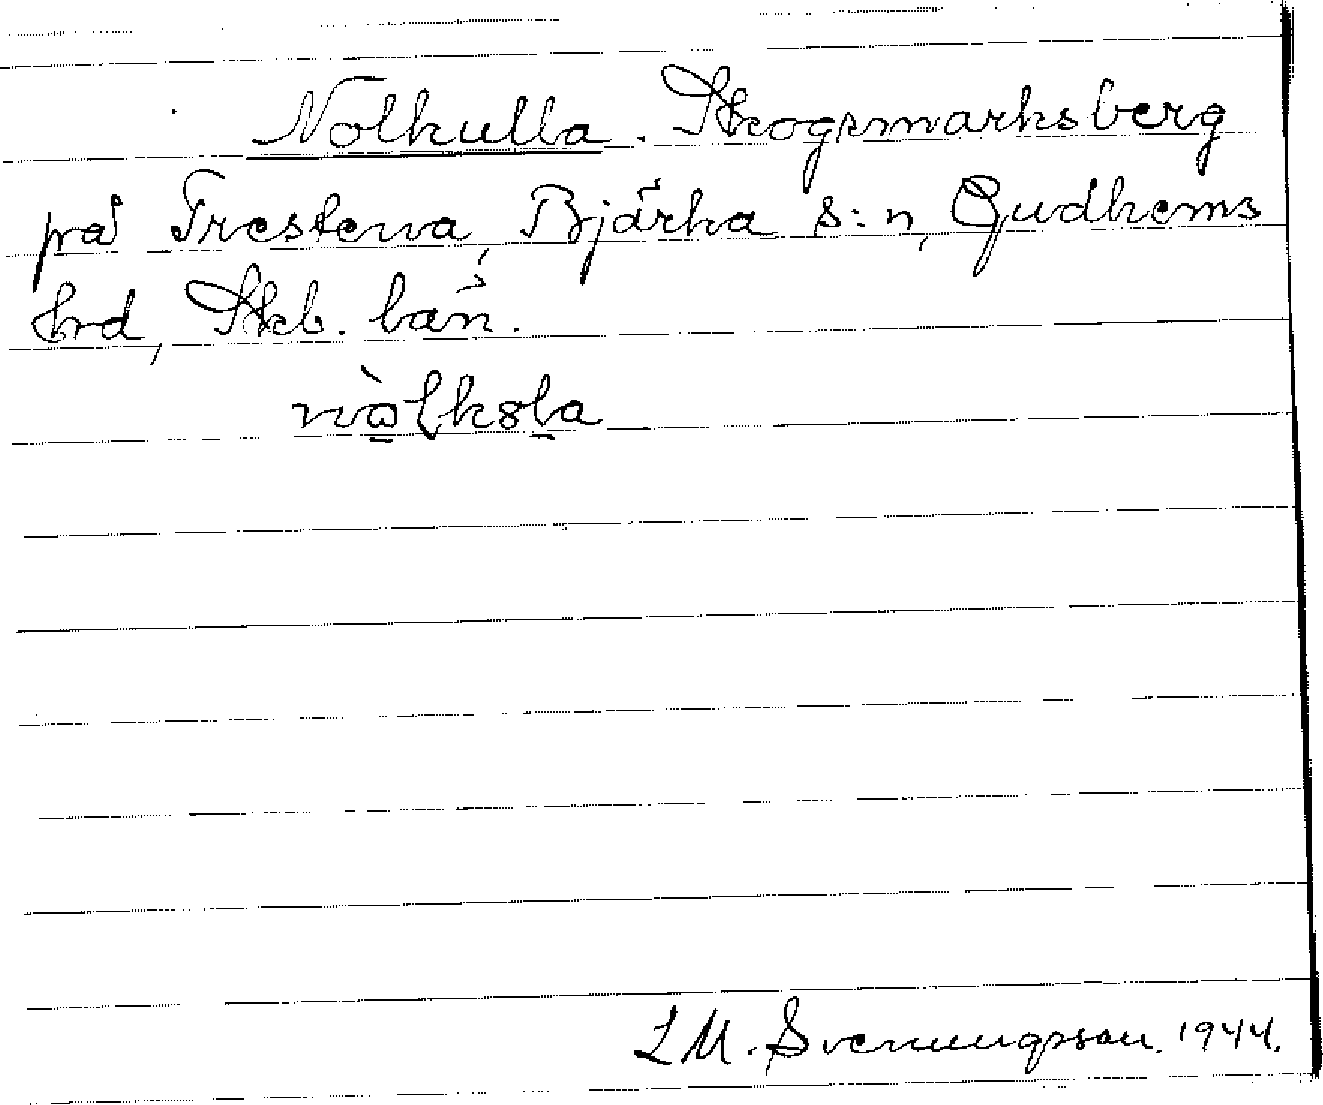 Nolkulla. Skogsmarksberg
på Trestena, Bjärka s:n, Gudhems
hrd, Skb. län.
L M. Svenungsson. 1944.